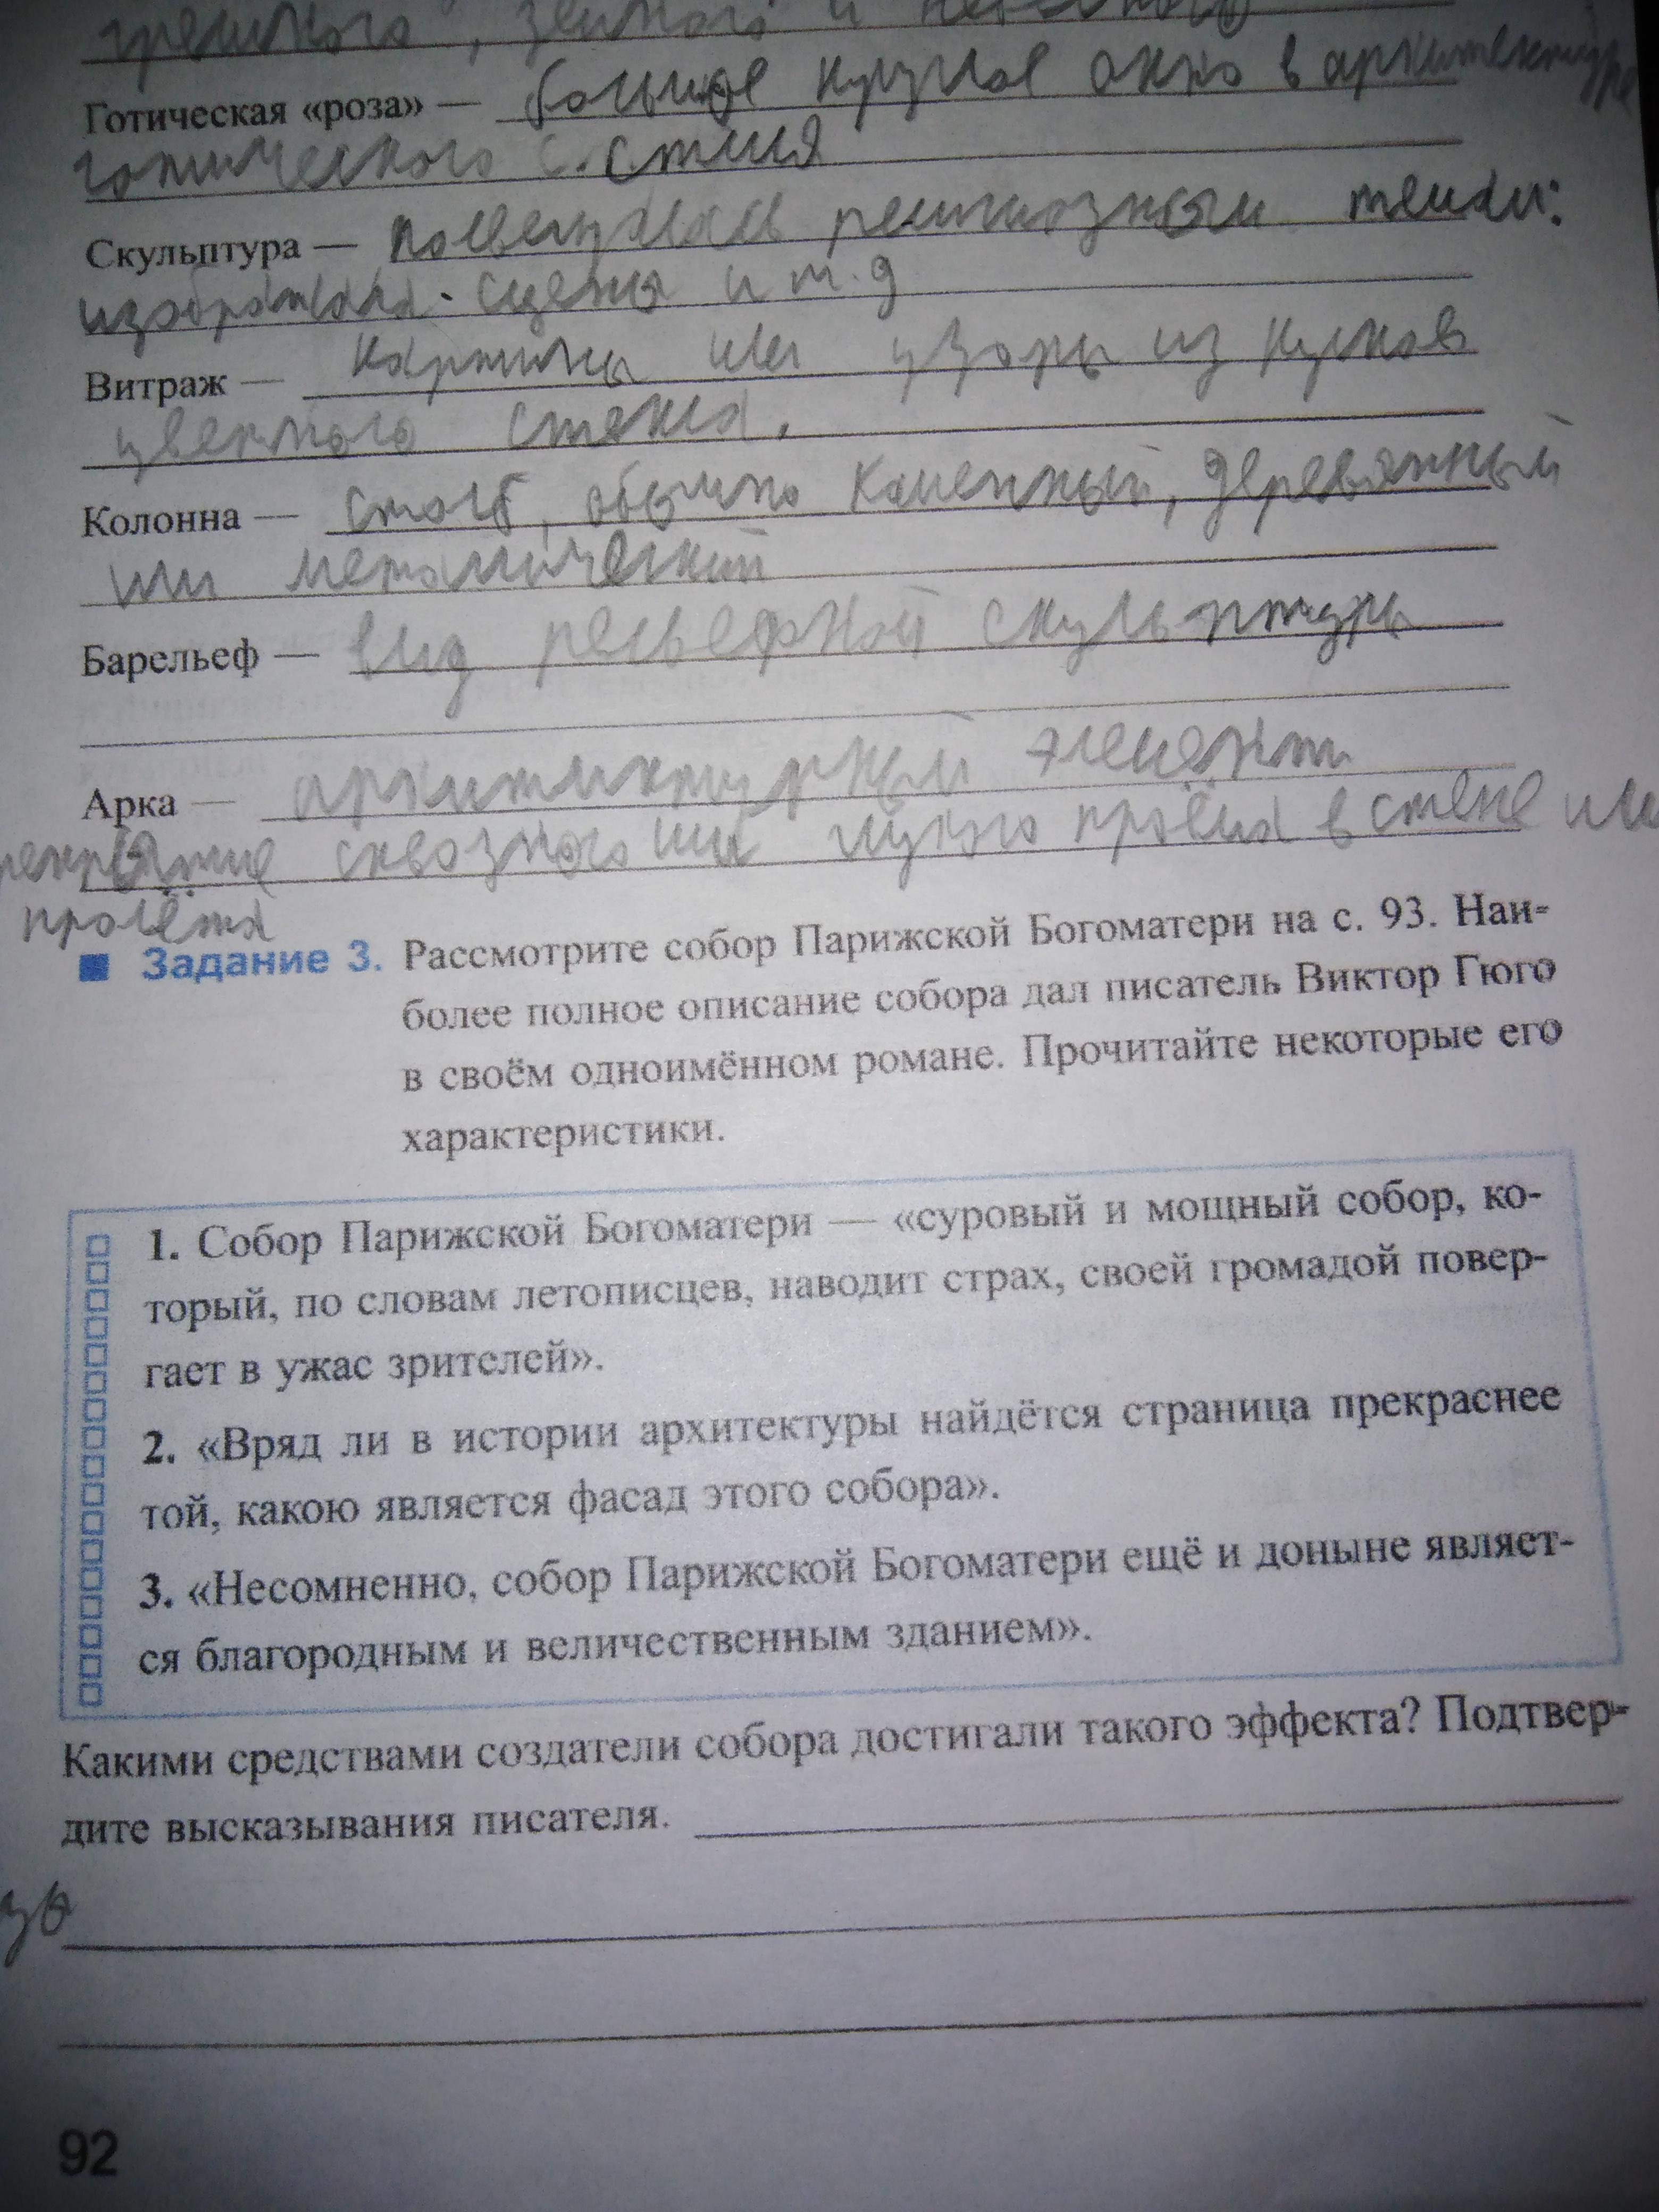 грешного, земного и небесного
Готическая «роза» — большое круглое окно в архитектуре
готического с. стиля
Скульптура — посвещалась религиозным темам:
изображала. сцены и т.д
Витраж — картины или узоры из кусков
цветного стекла.
Колонна — столб, обычно каменный, деревянный
или металический
Барельеф — вид рельефной скульптуры
Арка — архитиктурный элемент
сквозного или глухого проёма в стене или
пролёта
Задание 3. Рассмотрите собор Парижской Богоматери на с. 93. Наи-
более полное описание собора дал писатель Виктор Гюго
в своём одноимённом романе. Прочитайте некоторые его
характеристики.
1. Собор Парижской Богоматери — «суровый и мощный собор, ко-
торый, по словам летописцев, наводит страх, своей громадой повер-
гает в ужас зрителей».
2. «Вряд ли в истории архитектуры найдётся страница прекраснее
той, какою является фасад этого собора».
3. «Несомненно, собор Парижской Богоматери ещё и доныне являет-
ся благородным и величественным зданием».
Какими средствами создатели собора достигали такого эффекта? Подтвер-
дите высказывания писателя.
92